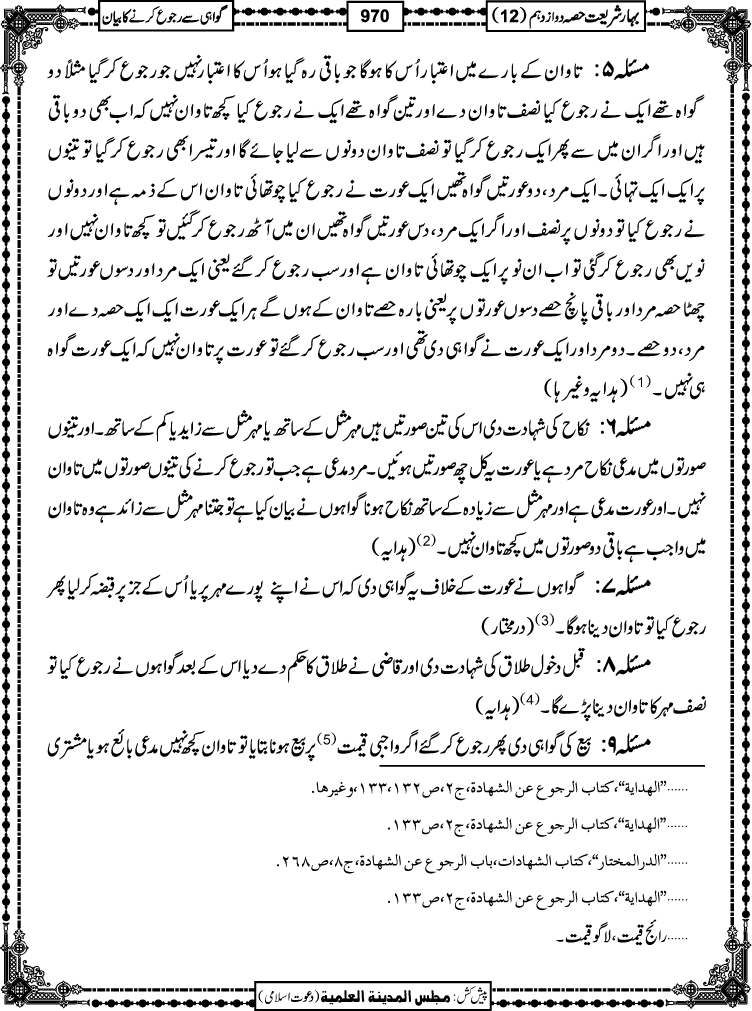 بہارِ شریعت حصہ دوازدہم (12)
970
گواہی سے رجوع کرنے کا بیان
مسئلہ ۵: تاوان کے بارے میں اعتبار اُس کا ہوگا جو باقی رہ گیا ہو اُس کا اعتبار نہیں جو رجوع کرگیا مثلاً دو
گواہ تھے ایک نے رجوع کیا نصف تاوان دے اور تین گواہ تھے ایک نے رجوع کیا کچھ تاوان نہیں کہ اب بھی دو باقی
ہیں اور اگر ان میں سے پھر ایک رجوع کرگیا تو نصف تاوان دونوں سے لیا جائے گا اور تیسرا بھی رجوع کرگیا تو تینوں
پر ایک ایک تہائی۔ ایک مرد، دو عورتیں گواہ تھیں ایک عورت نے رجوع کیا چوتھائی تاوان اس کے ذمہ ہے اور دونوں
نے رجوع کیا تو دونوں پر نصف اور اگر ایک مرد، دس عورتیں گواہ تھیں ان میں آٹھ رجوع کرگئیں تو کچھ تاوان نہیں اور
نویں بھی رجوع کرگئی تو اب ان نو پر ایک چوتھائی تاوان ہے اور سب رجوع کرگئے یعنی ایک مرد اور دسوں عورتیں تو
چھٹا حصہ مرد اور باقی پانچ حصے دسوں عورتوں پر یعنی بارہ حصے تاوان کے ہوں گے ہر ایک عورت ایک ایک حصہ دے اور
مرد، دو حصے۔ دو مرد اور ایک عورت نے گواہی دی تھی اور سب رجوع کرگئے تو عورت پر تاوان نہیں کہ ایک عورت گواہ
ہی نہیں۔(1) (ہدایہ وغیرہا)
مسئلہ ۶: نکاح کی شہادت دی اس کی تین صورتیں ہیں مہر مثل کے ساتھ یا مہر مثل سے زاید یا کم کے ساتھ۔ اور تینوں
صورتوں میں مدعی نکاح مرد ہے یا عورت یہ کل چھ صورتیں ہوئیں۔ مرد مدعی ہے جب تو رجوع کرنے کی تینوں صورتوں میں تاوان
نہیں۔ اور عورت مدعی ہے اور مہر مثل سے زیادہ کے ساتھ نکاح ہونا گواہوں نے بیان کیا ہے تو جتنا مہر مثل سے زائد ہے وہ تاوان
میں واجب ہے باقی دو صورتوں میں کچھ تاوان نہیں۔(2) (ہدایہ)
مسئلہ ۷: گواہوں نے عورت کے خلاف یہ گواہی دی کہ اس نے اپنے پورے مہر پر یا اُس کے جز پر قبضہ کرلیا پھر
رجوع کیا تو تاوان دینا ہوگا۔(3) (درمختار)
مسئلہ ۸: قبل دخول طلاق کی شہادت دی اور قاضی نے طلاق کا حکم دے دیا اس کے بعد گواہوں نے رجوع کیا تو
نصف مہر کا تاوان دینا پڑے گا۔(4) (ہدایہ)
مسئلہ ۹: بیع کی گواہی دی پھر رجوع کرگئے اگر واجبی قیمت(5) پر بیع ہونا بتایا تو تاوان کچھ نہیں مدعی بائع ہو یا مشتری
......"الھدایة"، کتاب الرجوع عن الشھادة، ج٢، ص١٣٢، ١٣٣، وغیرھا.
......"الھدایة"، کتاب الرجوع عن الشھادة، ج٢، ص١٣٣.
......"الدرالمختار"، کتاب الشھادات، باب الرجوع عن الشھادة، ج٨، ص٢٦٨.
......"الھدایة"، کتاب الرجوع عن الشھادة، ج٢، ص١٣٣.
......رائج قیمت، لاگو قیمت۔
پیش کش: مجلس المدینة العلمیة (دعوت اسلامی)